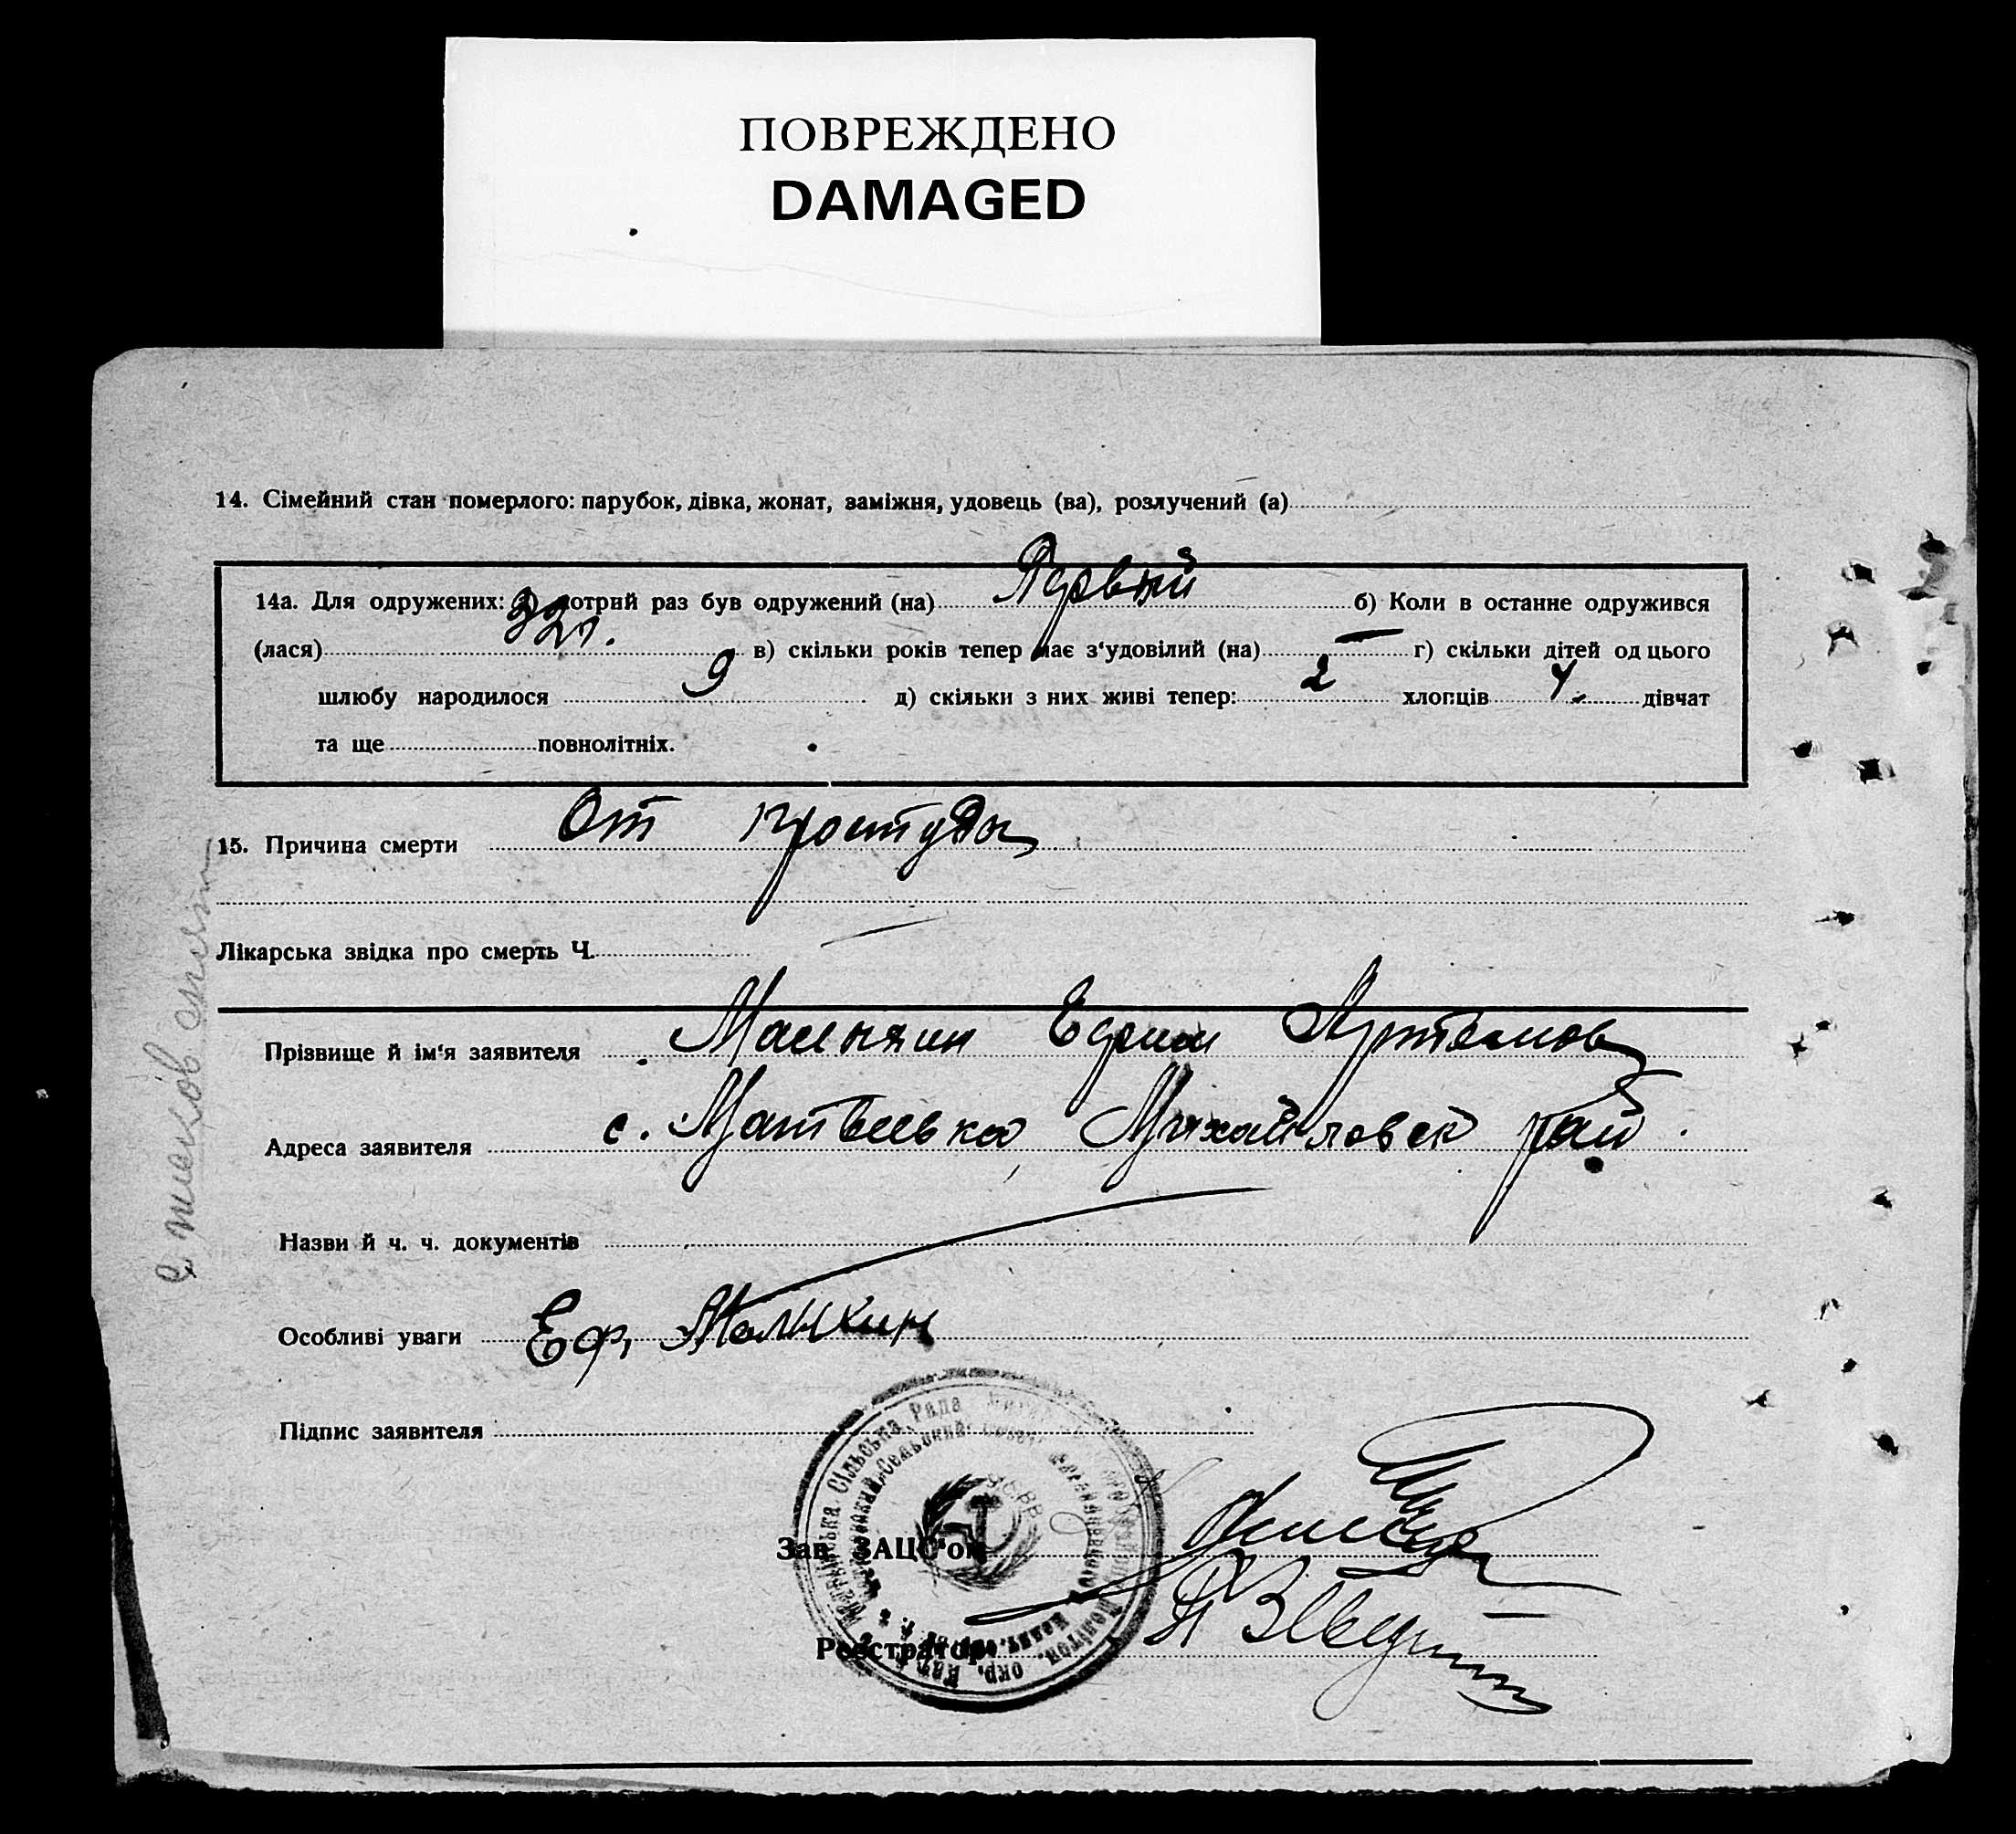 ПОВРЕЖДЕНО
DAMAGED
14. Сімейний стан померлого: парубок, дівка, жонат, заміжня, удовець (ва), розлучений (а)
14а. Для одружених: а) котрий раз був одружений (на) Первый б) Коли в останне одружився
(лася) 32 г. в) скільки років тепер має з'удовілий (на) — г) скільки дітей од цього
шлюбу народилося 9 д) скільки з них живі тепер: 2 хлопців 4 дівчат
та ще повнолітніх.
15. Причина смерти От простуды
Лікарська звідка про смерть Ч.
Прізвище й ім'я заявителя Малыхин Ефрим Артемов
Адреса заявителя с. Матвеевка Михайловск рай.
Назви й ч. ч. документів
Особливі уваги Еф, Малыхин
Підпис заявителя
Сільська Рада
Сельский
Зав. ЗАЦС'ом
Реєстратор